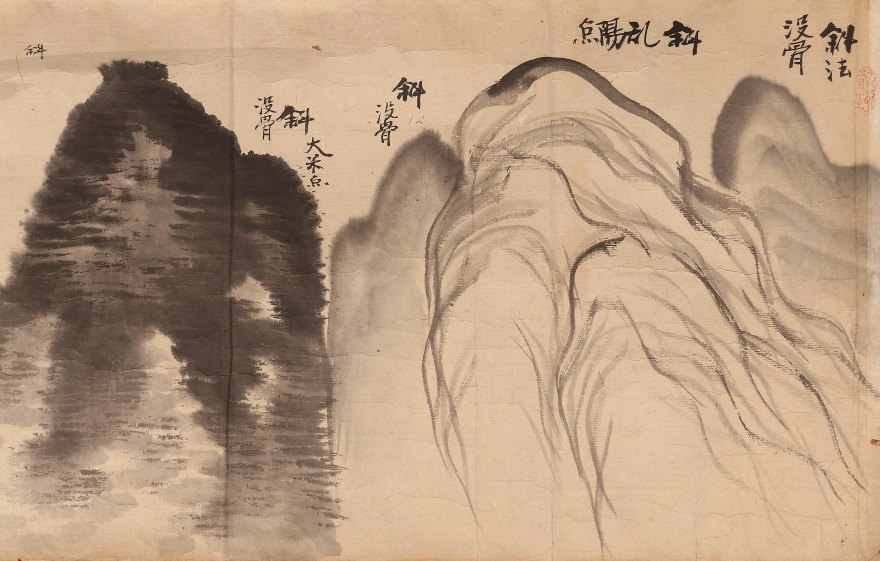 斜法
没骨
斜乱
斜
没骨
大米点
斜
没骨
斜